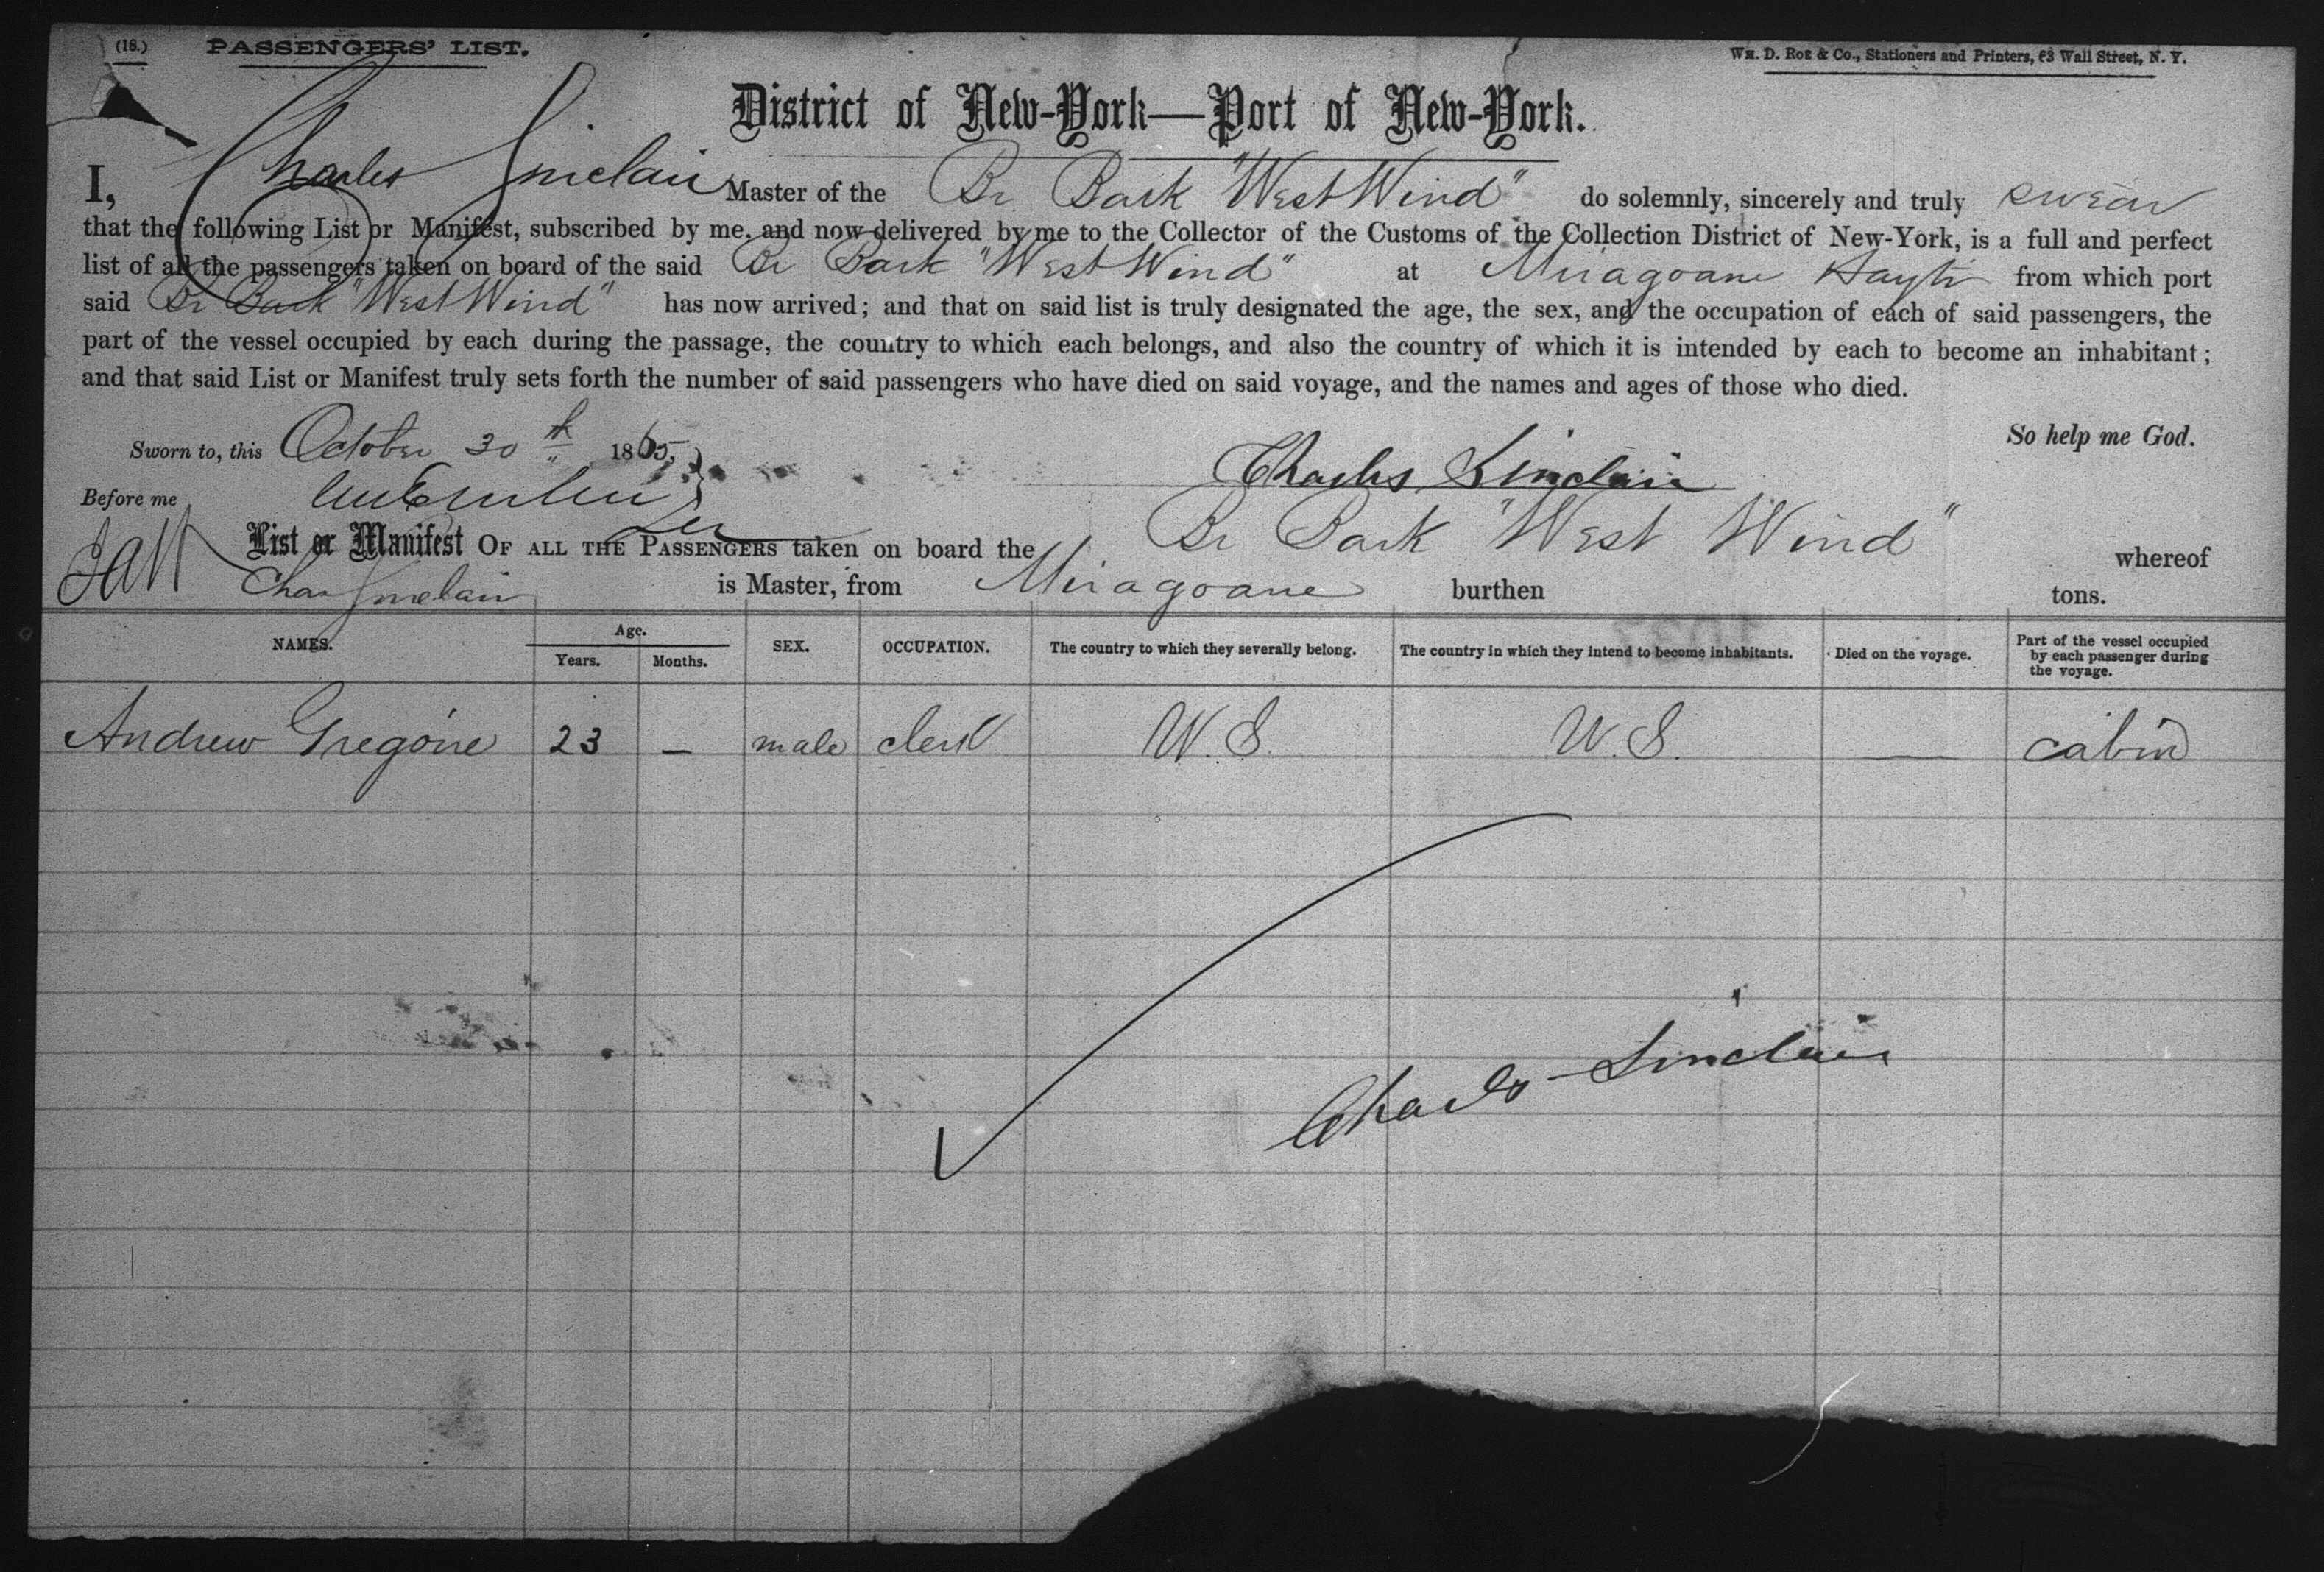 (18.) PASSENGERS' LIST. WM. D. ROE & Co., Stationers and Printers, 63 Wall Street, N. Y.
District of New-York—Port of New-York.
I, Charles Sinclair Master of the Br Bark "West Wind" do solemnly, sincerely and truly swear
that the following List or Manifest, subscribed by me, and now delivered by me to the Collector of the Customs of the Collection District of New-York, is a full and perfect
list of all the passengers taken on board of the said Br Bark "West Wind" at Miragoane Hayti from which port
said Br Bark "West Wind" has now arrived; and that on said list is truly designated the age, the sex, and the occupation of each of said passengers, the
part of the vessel occupied by each during the passage, the country to which each belongs, and also the country of which it is intended by each to become an inhabitant;
and that said List or Manifest truly sets forth the number of said passengers who have died on said voyage, and the names and ages of those who died.
So help me God.
Sworn to, this October 30th 1865, Charles Sinclair
Before me
List or Manifest OF ALL THE PASSENGERS taken on board the Br Bark "West Wind" whereof
Chas Sinclair is Master, from Miragoane burthen tons.
NAMES. Age. Years. Months. SEX. OCCUPATION. The country to which they severally belong. The country in which they intend to become inhabitants. Died on the voyage. Part of the vessel occupied by each passenger during the voyage.
Andrew Gregorie 23 — male clerk U.S. U.S. — cabin
Charles Sinclair